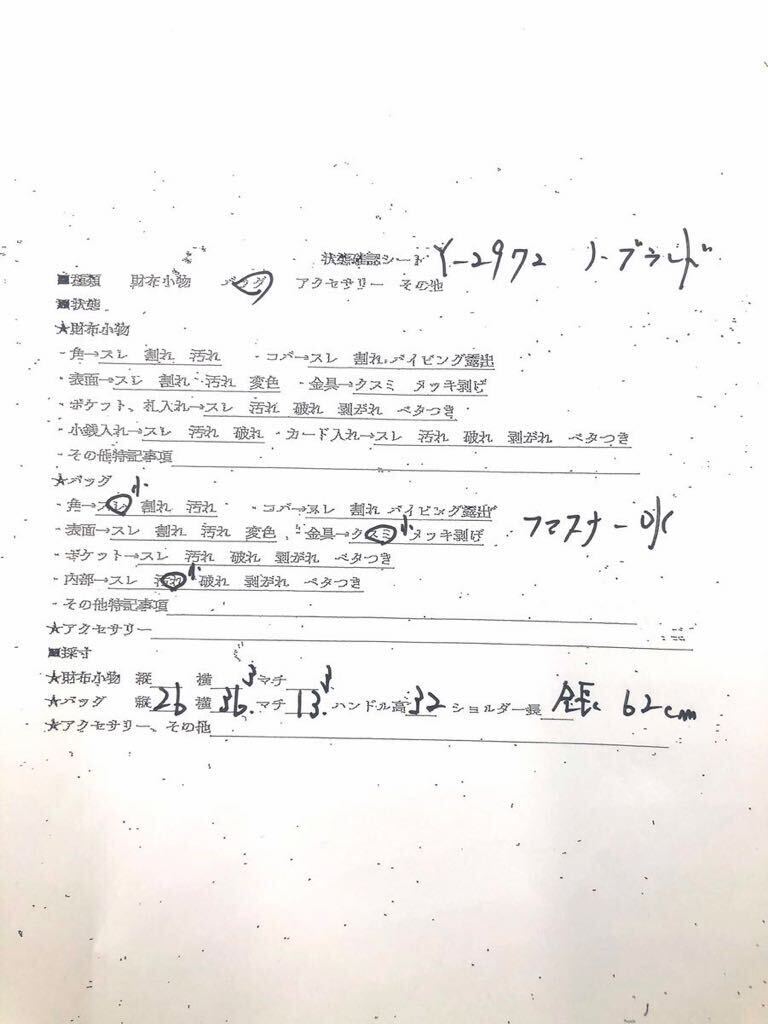 状態確認シート Y-2972 ノーブランド
■種類 財布小物 バッグ アクセサリー その他
■状態
★財布小物
・角→スレ 割れ 汚れ ・コバ→スレ 割れ パイピング露出
・表面→スレ 割れ 汚れ 変色 ・金具→クスミ メッキ剥げ
・ポケット、札入れ→スレ 汚れ 破れ 剥がれ ベタつき
・小銭入れ→スレ 汚れ 破れ ・カード入れ→スレ 汚れ 破れ 剥がれ ベタつき
・その他特記事項
★バッグ 小
・角→スレ 割れ 汚れ ・コバ→スレ 割れ パイピング露出
・表面→スレ 割れ 汚れ 変色 ・金具→クスミ 小 メッキ剥げ ファスナーOK
・ポケット→スレ 汚れ 破れ 剥がれ ベタつき
・内部→スレ 汚れ 小 破れ 剥がれ ベタつき
・その他特記事項
★アクセサリー
■採寸
★財布小物 縦 横 マチ
★バッグ 縦 26 横 36. マチ 13. ハンドル高 32 ショルダー長 全長 62cm
★アクセサリー、その他